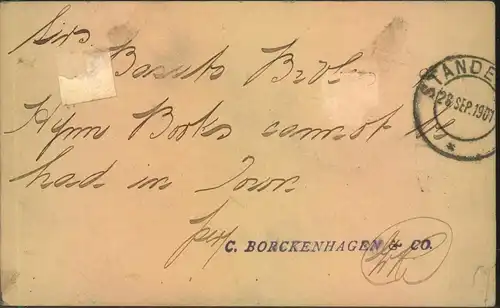 Sirs
Basuto Bibles
Hymn Books cannot be
had in Town
per C. BORCKENHAGEN & CO.
STANDE
28 SEP.1901